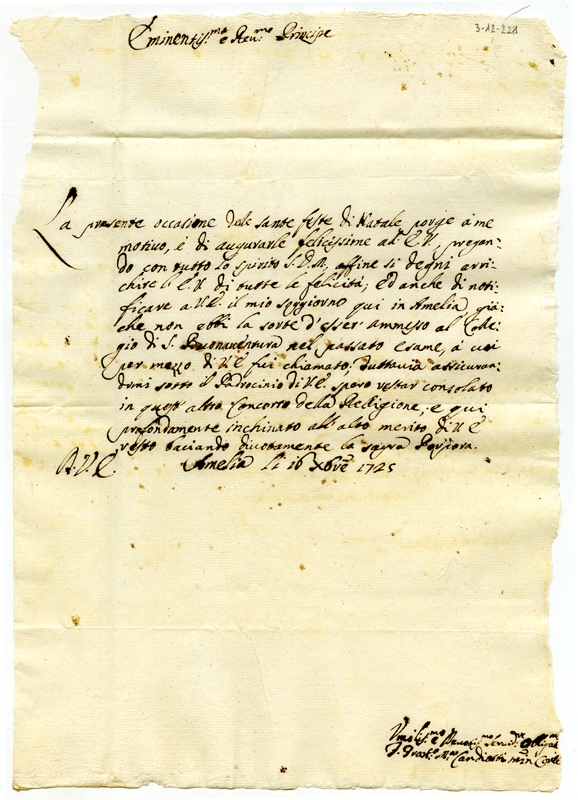 3-12-221
Eminentis.mo e Rev.mo Principe
La presente occasione delle sante feste di Natale porge à me
motivo, è di augurarle felicissime all' E.V., pregan-
do con tutto lo spirito S.D.M. affine si degni arri-
chire l'E.V. di tutte le felicità; ed anche di noti-
ficare a V.E. il mio soggiorno qui in Amelia, già
che non ebbi la sorte d'esser ammesso al Colle-
gio di S. Buonaventura nel passato esame, à cui
per mezzo di V.E. fui chiamato; tuttavia assicuran-
domi sotto il Padrocinio di V.E. spero restar consolato
in quest'altro Concorso della Religione; e qui
profondamente inchinato all'alto merito di V.E.
resto baciando divotamente la sagra Porpora.
D.V.E. Amelia li 16 Xbre 1725
Umilis.mo e Devotis.mo Servid.re Obligat.
F. M.a Min. Con.le